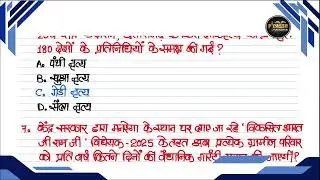 180 देशों के प्रतिनिधियों के समक्ष की गई ?
A. पंथी नृत्य
B. सुआ नृत्य
C. गेड़ी नृत्य
D. सैला नृत्य
7. केंद्र सरकार द्वारा मनरेगा के स्थान पर लाए जा रहे 'विकसित भारत
जी राम जी' विधेयक-2025 के तहत अब प्रत्येक ग्रामीण परिवार
को प्रति वर्ष कितने दिनों की वैधानिक गारंटी